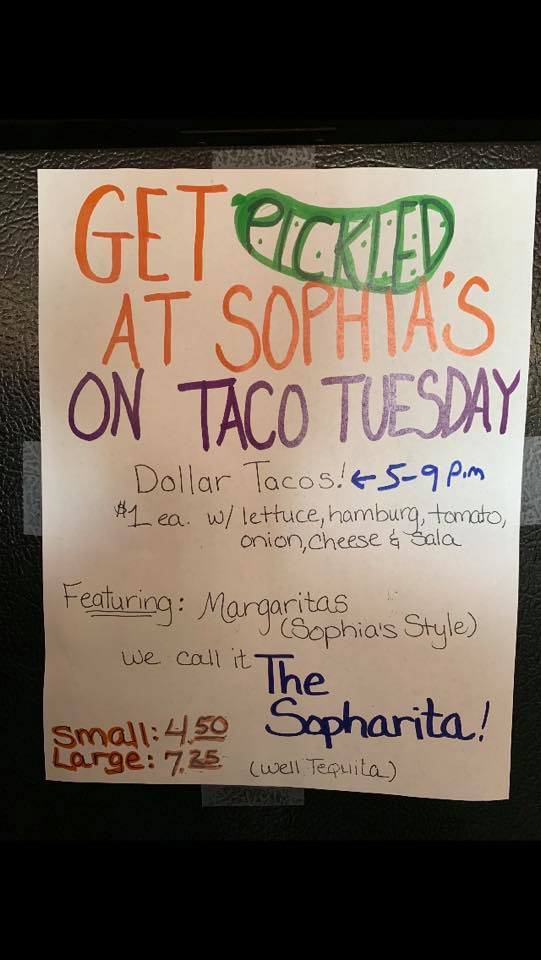 GET PICKLED
AT SOPHIA'S
ON TACO TUESDAY
Dollar Tacos! ← 5-9 P.m
$1 ea. w/ lettuce, hamburg, tomato,
onion, cheese & Sala
Featuring: Margaritas
(Sophia's Style)
we call it The
Sopharita!
Small: 4.50
Large: 7.25
(well Tequita)